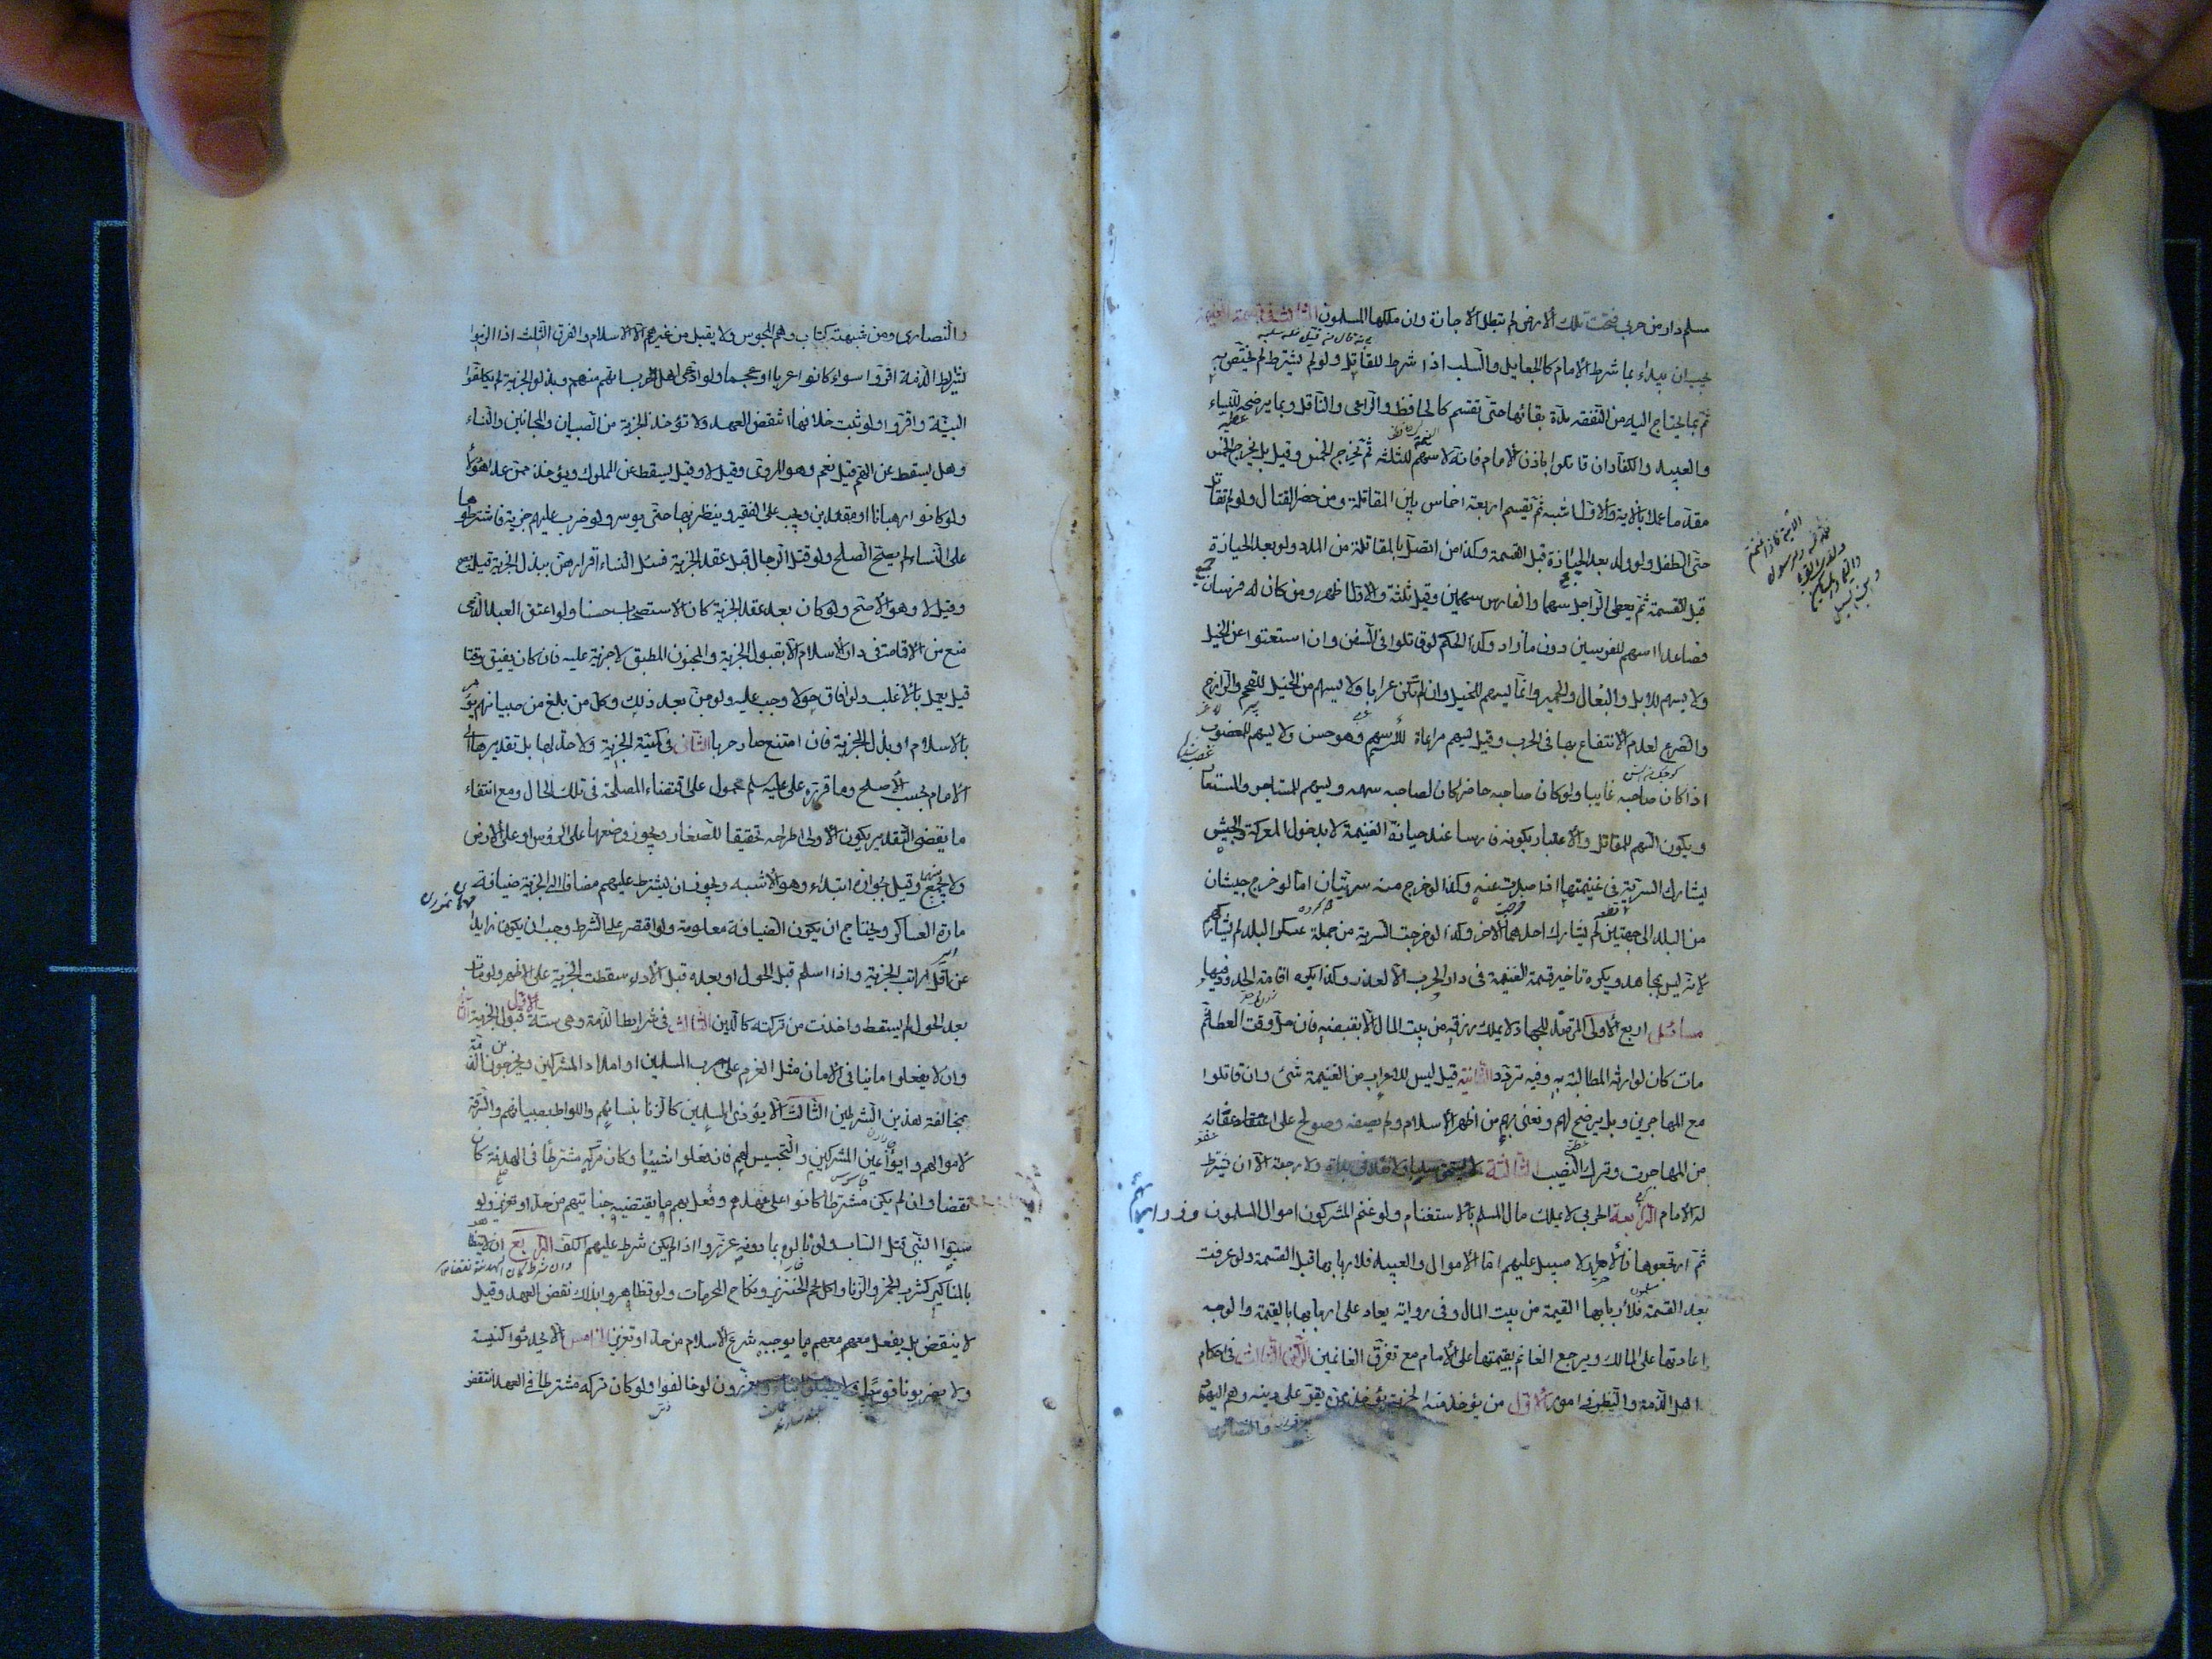 مسلم دار من حربي فتحت تلك الارض لم تبطل الاجانة وان ملكها المسلمون الثالث في قسمة الغنيمة
يجب ان يبداء بما شرط الامام كالجعايل والسلب اذا شرط للقاتل ولو لم يشترط لم يختص به
ثم بما يحتاج اليه من النفقة مدة بقائها حتى تقسم كالحافظ والراعى والناقل وبما يرضخه للنساء
والعبيد والكفار ان قاتلوا باذن الامام فانه لاسهم للثلثة ثم يخرج الخمس وقيل بل يخرج الخمس
مقدما عملا بالاية والاول اشبه ثم تقسم اربعة اخماس بين المقاتلة ومن حضر القتال ولو لم يقاتل
حتى الطفل ولو ولد بعد الحيازة قبل القسمة وكذا من اتصل بالمقاتلة من المدد ولو بعد الحيازة
قبل القسمة ثم يعطى الراجل سهما والفارس سهمين وقيل ثلثة والاول اظهر ومن كان له فرسان
فصاعدا اسهم للفرسين دون ما زاد وكذا الحكم لو قاتلوا في السفن وان استغنوا عن الخيل
ولا يسهم للابل والبغال والحمير وانما يسهم للخيل وان لم تكن عرابا ولا يسهم من الخيل للقحم والرازح
والضرع لعدم الانتفاع بها فى الحرب وقيل يسهم مراعاة للاسم وهو حسن ولا يسهم للمغصوب
اذا كان صاحبه غايبا ولو كان صاحبه حاضرا كان لصاحبه سهمه ويسهم للمستاجر والمستعار
ويكون السهم للمقاتل والاعتبار بكونه فارسا عند حيازة الغنيمة لا بدخول المعركة والجيش
يشارك السرية فى غنيمتها اذا صدرت عنه وكذا لو خرج منه سريتان اما لو خرج جيشان
من البلد الى جهتين لم يشارك احدهما الاخر وكذا لو خرجت السرية من جملة عسكر البلد لم يشاركهم
لانه ليس بمجاهد ويكره تاخير قسمة الغنيمة فى دار الحرب الا لعذر وكذا يكره اقامة الحدود فيها
مسائل اربع الاولى المرتصد للجهاد لا يملك رزقه من بيت المال الا بقبضه فان حل وقت العطا ثم
مات كان لوارثه المطالبة به وفيه تردد الثانية قيل ليس للاعراب من الغنيمة شئ وان قاتلوا
مع المهاجرين وبل يرضخ لهم ونعنى بهم من اظهر الاسلام ولم يصفه وصولح على اعفائه
من المهاجرة وترك النصيب الثالثة لا يستحق سلبا ولا نفلا فى بداءة ولا رجعة الا ان يشترط
له الامام الرابعة الحربى لا يملك مال المسلم بالاستغنام ولو غنم المشركون اموال المسلمين وذراريهم
ثم ارتجعوها فالاحرار لا سبيل عليهم اما الاموال والعبيد فلاربابها قبل القسمة ولو عرفت
بعد القسمة فلاربابها القيمة من بيت المال وفى رواية يعاد على اربابها بالقيمة والوجه
اعادتها على المالك ويرجع الغانم بقيمتها على الامام مع تفرق الغانمين الركن الثالث فى احكام
اهل الذمة والنظر فى امور الاول من يؤخذ منه الجزية يؤخذ ممن يقر على دينه وهم اليهود
والنصارى
والنصارى ومن شبهة كتاب وهم المجوس ولا يقبل من غيرهم الا الاسلام والفرق الثلث اذا التزموا
شرايط الذمة اقروا سواء كانوا عربا او عجما ولو ادعى اهل الحرب انهم منهم وبذلوا الجزية لم يكلفوا
البينة واقروا ولو ثبت خلافها انتقض العهد ولا تؤخذ الجزية من الصبيان والمجانين والنساء
وهل يسقط عن الهم قيل نعم وهو المروى وقيل لا وقيل يسقط عن المملوك ويؤخذ ممن عدا هؤلاء
ولو كانوا رهبانا او مقعدين ويجب على الفقير وينظر بها حتى يوسر ولو ضرب عليهم جزية فاشترطوها
على النساء لم يصح الصلح ولو قتل الرجال قبل عقد الجزية فسئل النساء اقرارهن ببذل الجزية قيل يصح
وقيل لا وهو الاصح ولو كان بعد عقد الجزية كان الاستصحاب حسنا ولو اعتق العبد الذمى
منع من الاقامة فى دار الاسلام الا بقبول الجزية والمجنون المطبق لا جزية عليه فان كان يفيق وقتا
قيل يعمل بالاغلب ولو افاق حولا وجب عليه ولو جن بعد ذلك وكل من بلغ من صبيانهم يؤمر
بالاسلام او بذل الجزية فان امتنع صار حربا الثانى فى كمية الجزية ولا حد لها بل تقديرها الى
الامام بحسب الاصلح وما قرره على عليه سلم محمول على اقتضاء المصلحة فى تلك الحال ومع انتفاء
ما يقتضى التقدير يكون الاولى اطراحه تحقيقا للصغار ويجوز وضعها على الرؤس او على الارض
ولا يجمع بينهما وقيل بجوازه ابتداء وهو الاشبه ويجوز ان يشترط عليهم مضافا الى الجزية ضيافة
مارة العساكر ويحتاج ان يكون الضيافة معلومة ولو اقتصر على الشرط وجب ان يكون زايدا
عن اقل مراتب الجزية واذا اسلم قبل الحول او بعده قبل الاداء سقطت الجزية على الاظهر ولو مات
بعد الحول لم يسقط واخذت من تركته كالدين الثالث فى شرايط الذمة وهى ستة الاول قبول الجزية
وان لا يفعلوا ما ينافى الامان مثل العزم على حرب المسلمين او امداد المشركين ويخرجون
بمخالفة هذين الشرطين الثالث الا يؤذى المسلمين كالزنا بنسائهم واللواط بصبيانهم والسرقة
لاموالهم وايواء عين المشركين والتجسيس لهم فان فعلوا شيئا وكان تركه مشترطا فى الهدنة كان
نقضا وان لم يكن مشترطا كانوا على عهدهم وفعل بهم ما يقتضيه جنايتهم من حد او تعزير ولو
سبوا النبى قتل الساب ولو نالوه بما دونه عزروا اذا لم يكن شرط عليهم الكف الرابع ان لا يتظاهروا
بالمناكير كشرب الخمر والزنا واكل لحم الخنزير ونكاح المحرمات ولو تظاهروا بذلك نقض العهد وقيل
لا ينقض بل يفعل معهم ما يوجبه شرع الاسلام من حد او تعزير الخامس الا يحدثوا كنيسة
ولا يضربوا ناقوسا ويعزرون لو خالفوا ولو كان تركه مشترطا فى العهد انتقض